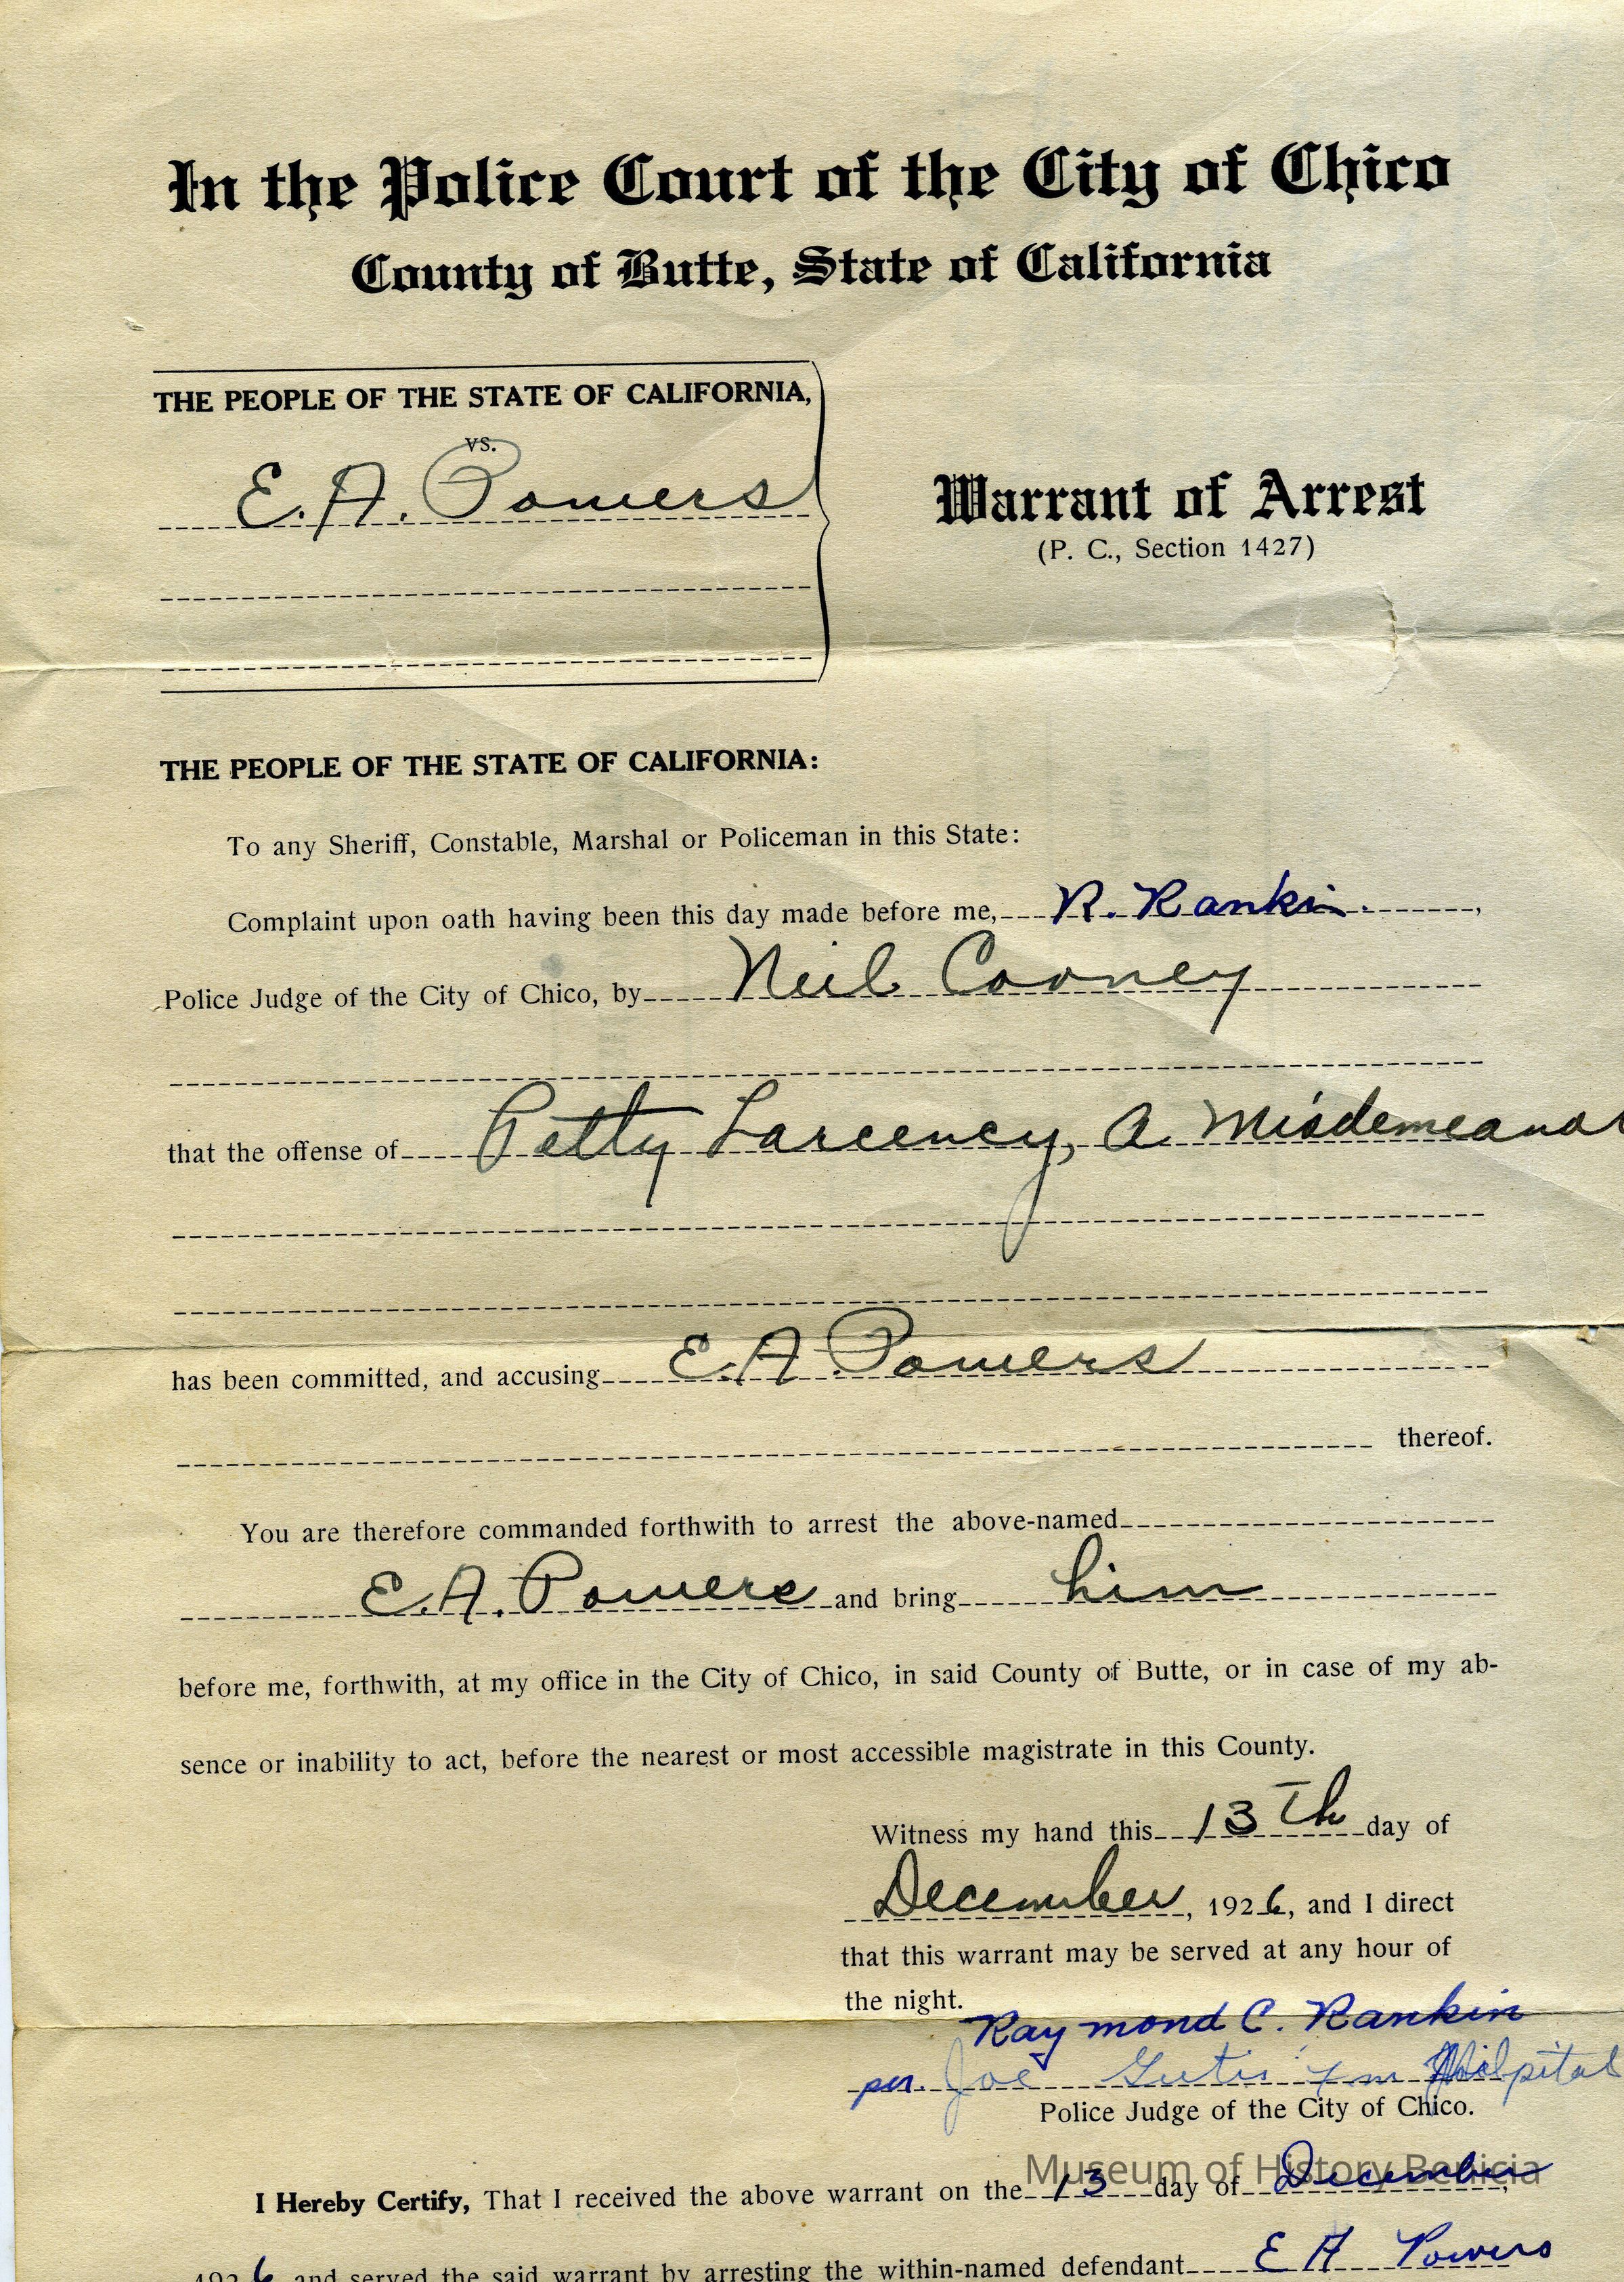 In the Police Court of the City of Chico
County of Butte, State of California
THE PEOPLE OF THE STATE OF CALIFORNIA,
vs.
E. A. Powers
Warrant of Arrest
(P. C., Section 1427)
THE PEOPLE OF THE STATE OF CALIFORNIA:
To any Sheriff, Constable, Marshal or Policeman in this State:
Complaint upon oath having been this day made before me, R. Rankin,
Police Judge of the City of Chico, by Neil Cooney
that the offense of Petty Larceency, A Misdemeanor
has been committed, and accusing E. A. Powers
thereof.
You are therefore commanded forthwith to arrest the above-named
E. A. Powers and bring him
before me, forthwith, at my office in the City of Chico, in said County of Butte, or in case of my ab-
sence or inability to act, before the nearest or most accessible magistrate in this County.
Witness my hand this 13th day of
December, 1926, and I direct
that this warrant may be served at any hour of
the night.
Raymond C. Rankin
per. Joe
Police Judge of the City of Chico.
Museum of History Benicia
I Hereby Certify, That I received the above warrant on the 13 day of December,
1926 and served the said warrant by arresting the within-named defendant E A Powers